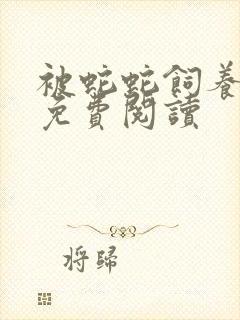 被蛇蛇飼養
免費閱讀
将歸